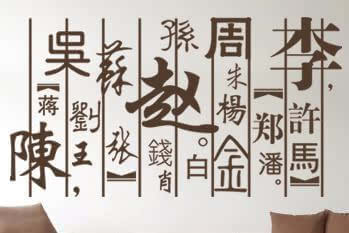 李，
許馬
【鄭】潘。
周
朱楊
金
孫
赵。白
錢肖
蘇
张】
劉王，
吳
【蒋
陳